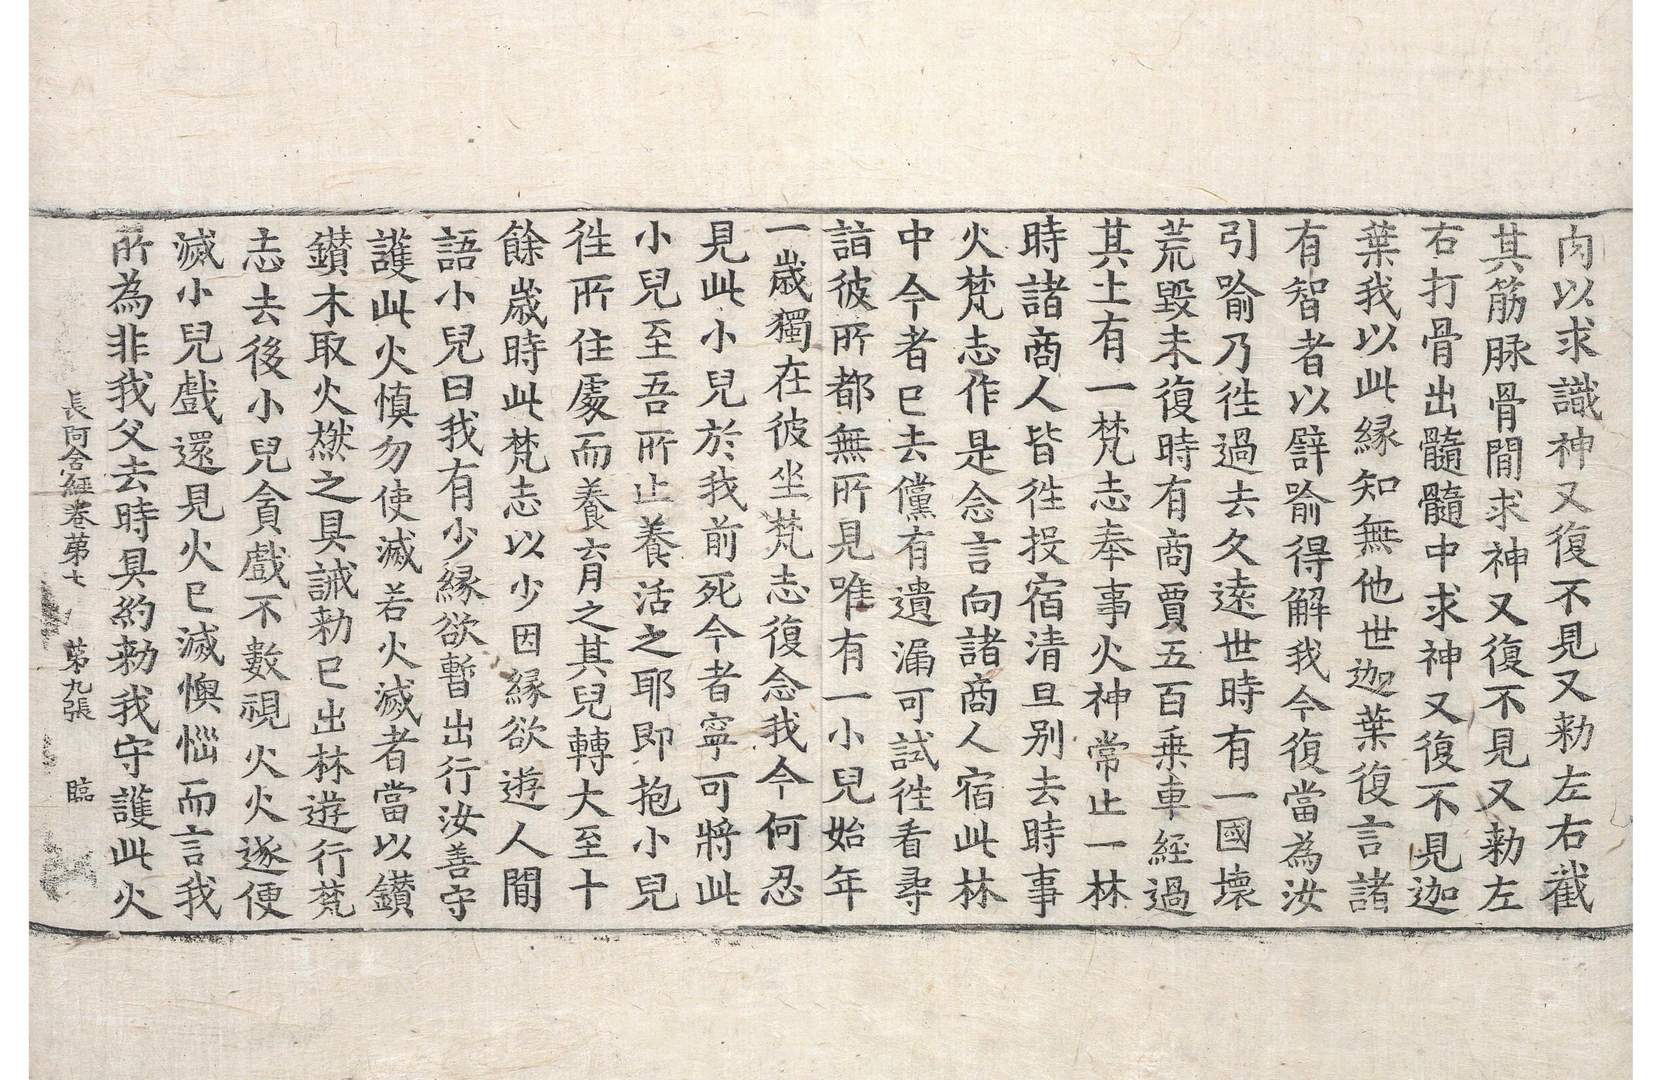 肉以求識神又復不見又勑左右截
其筋脉骨間求神又復不見又勑左
右打骨出髓髓中求神又復不見迦
葉我以此緣知無他世迦葉復言諸
有智者以譬喻得解我今復當為汝
引喻乃徃過去久遠世時有一國壞
荒毀未復時有商賈五百乗車經過
其土有一梵志奉事火神常止一林
時諸商人皆徃投宿清旦别去時事
火梵志作是念言向諸商人宿此林
中今者已去儻有遺漏可試徃看尋
詣彼所都無所見唯有一小兒始年
一歲獨在彼坐梵志復念我今何忍
見此小兒於我前死今者寧可將此
小兒至吾所止養活之耶即抱小兒
徃所住處而養育之其兒轉大至十
餘歲時此梵志以少因緣欲遊人間
語小兒曰我有少緣欲暫出行汝善守
護此火慎勿使滅若火滅者當以鑚
鑚木取火燃之具誡勑已出林遊行梵
志去後小兒貪戲不數視火火遂便
滅小兒戲還見火已滅懊惱而言我
所為非我父去時具約勑我守護此火
長阿含經卷第七　第九張　臨